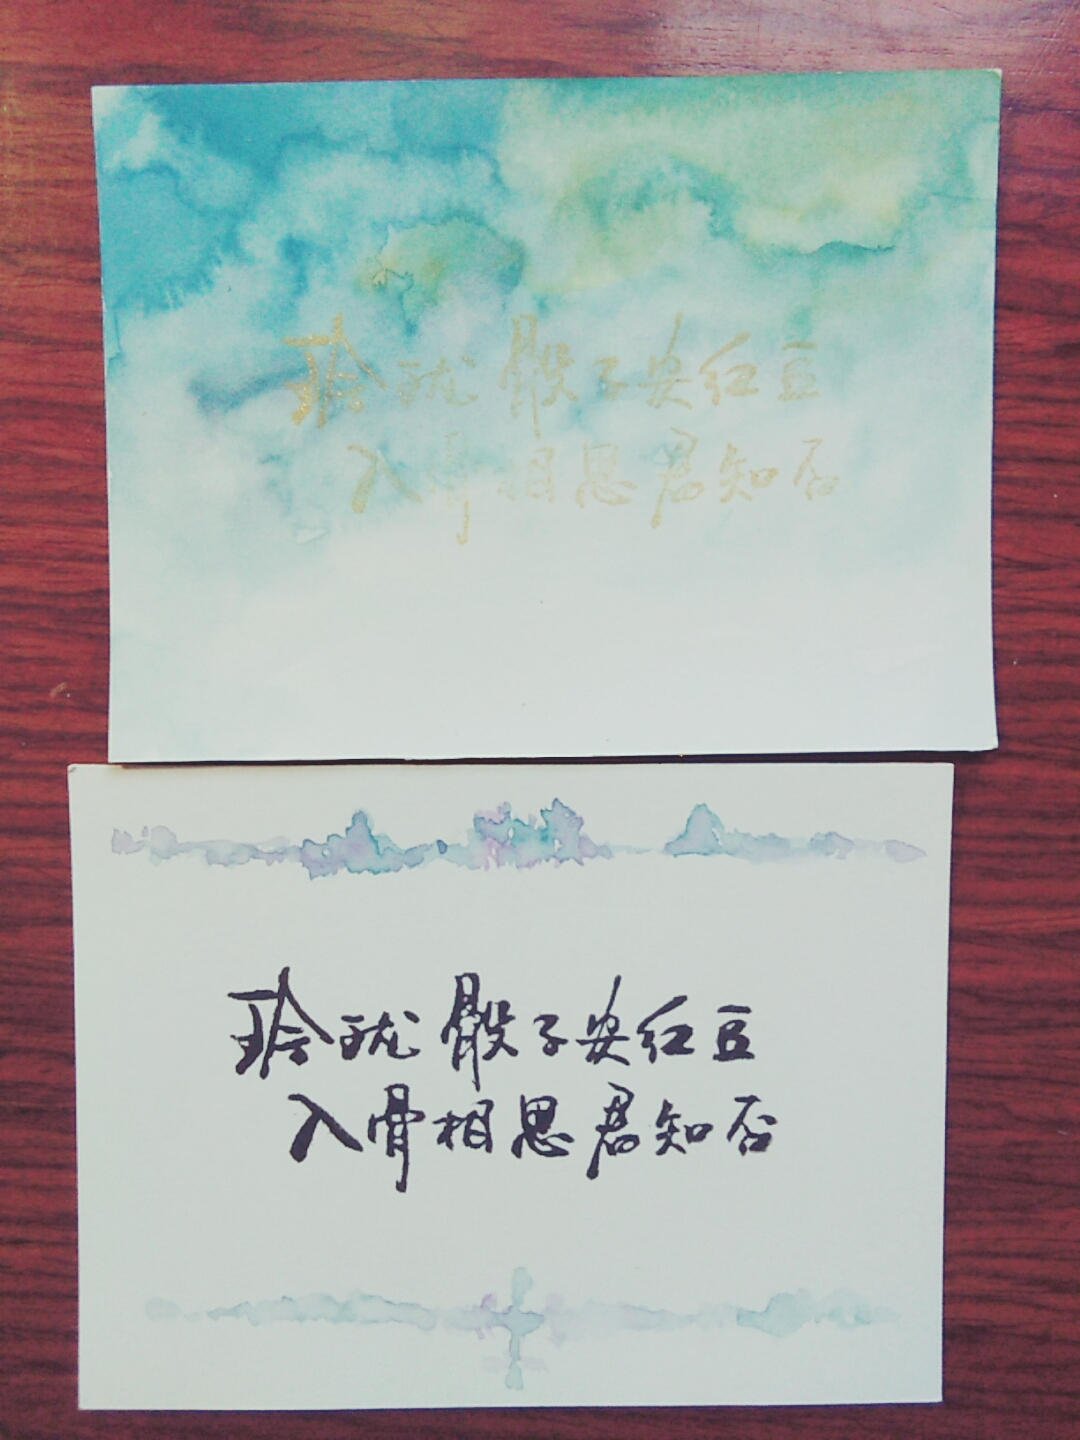 玲珑骰子安红豆
入骨相思君知否
玲珑骰子安红豆
入骨相思君知否